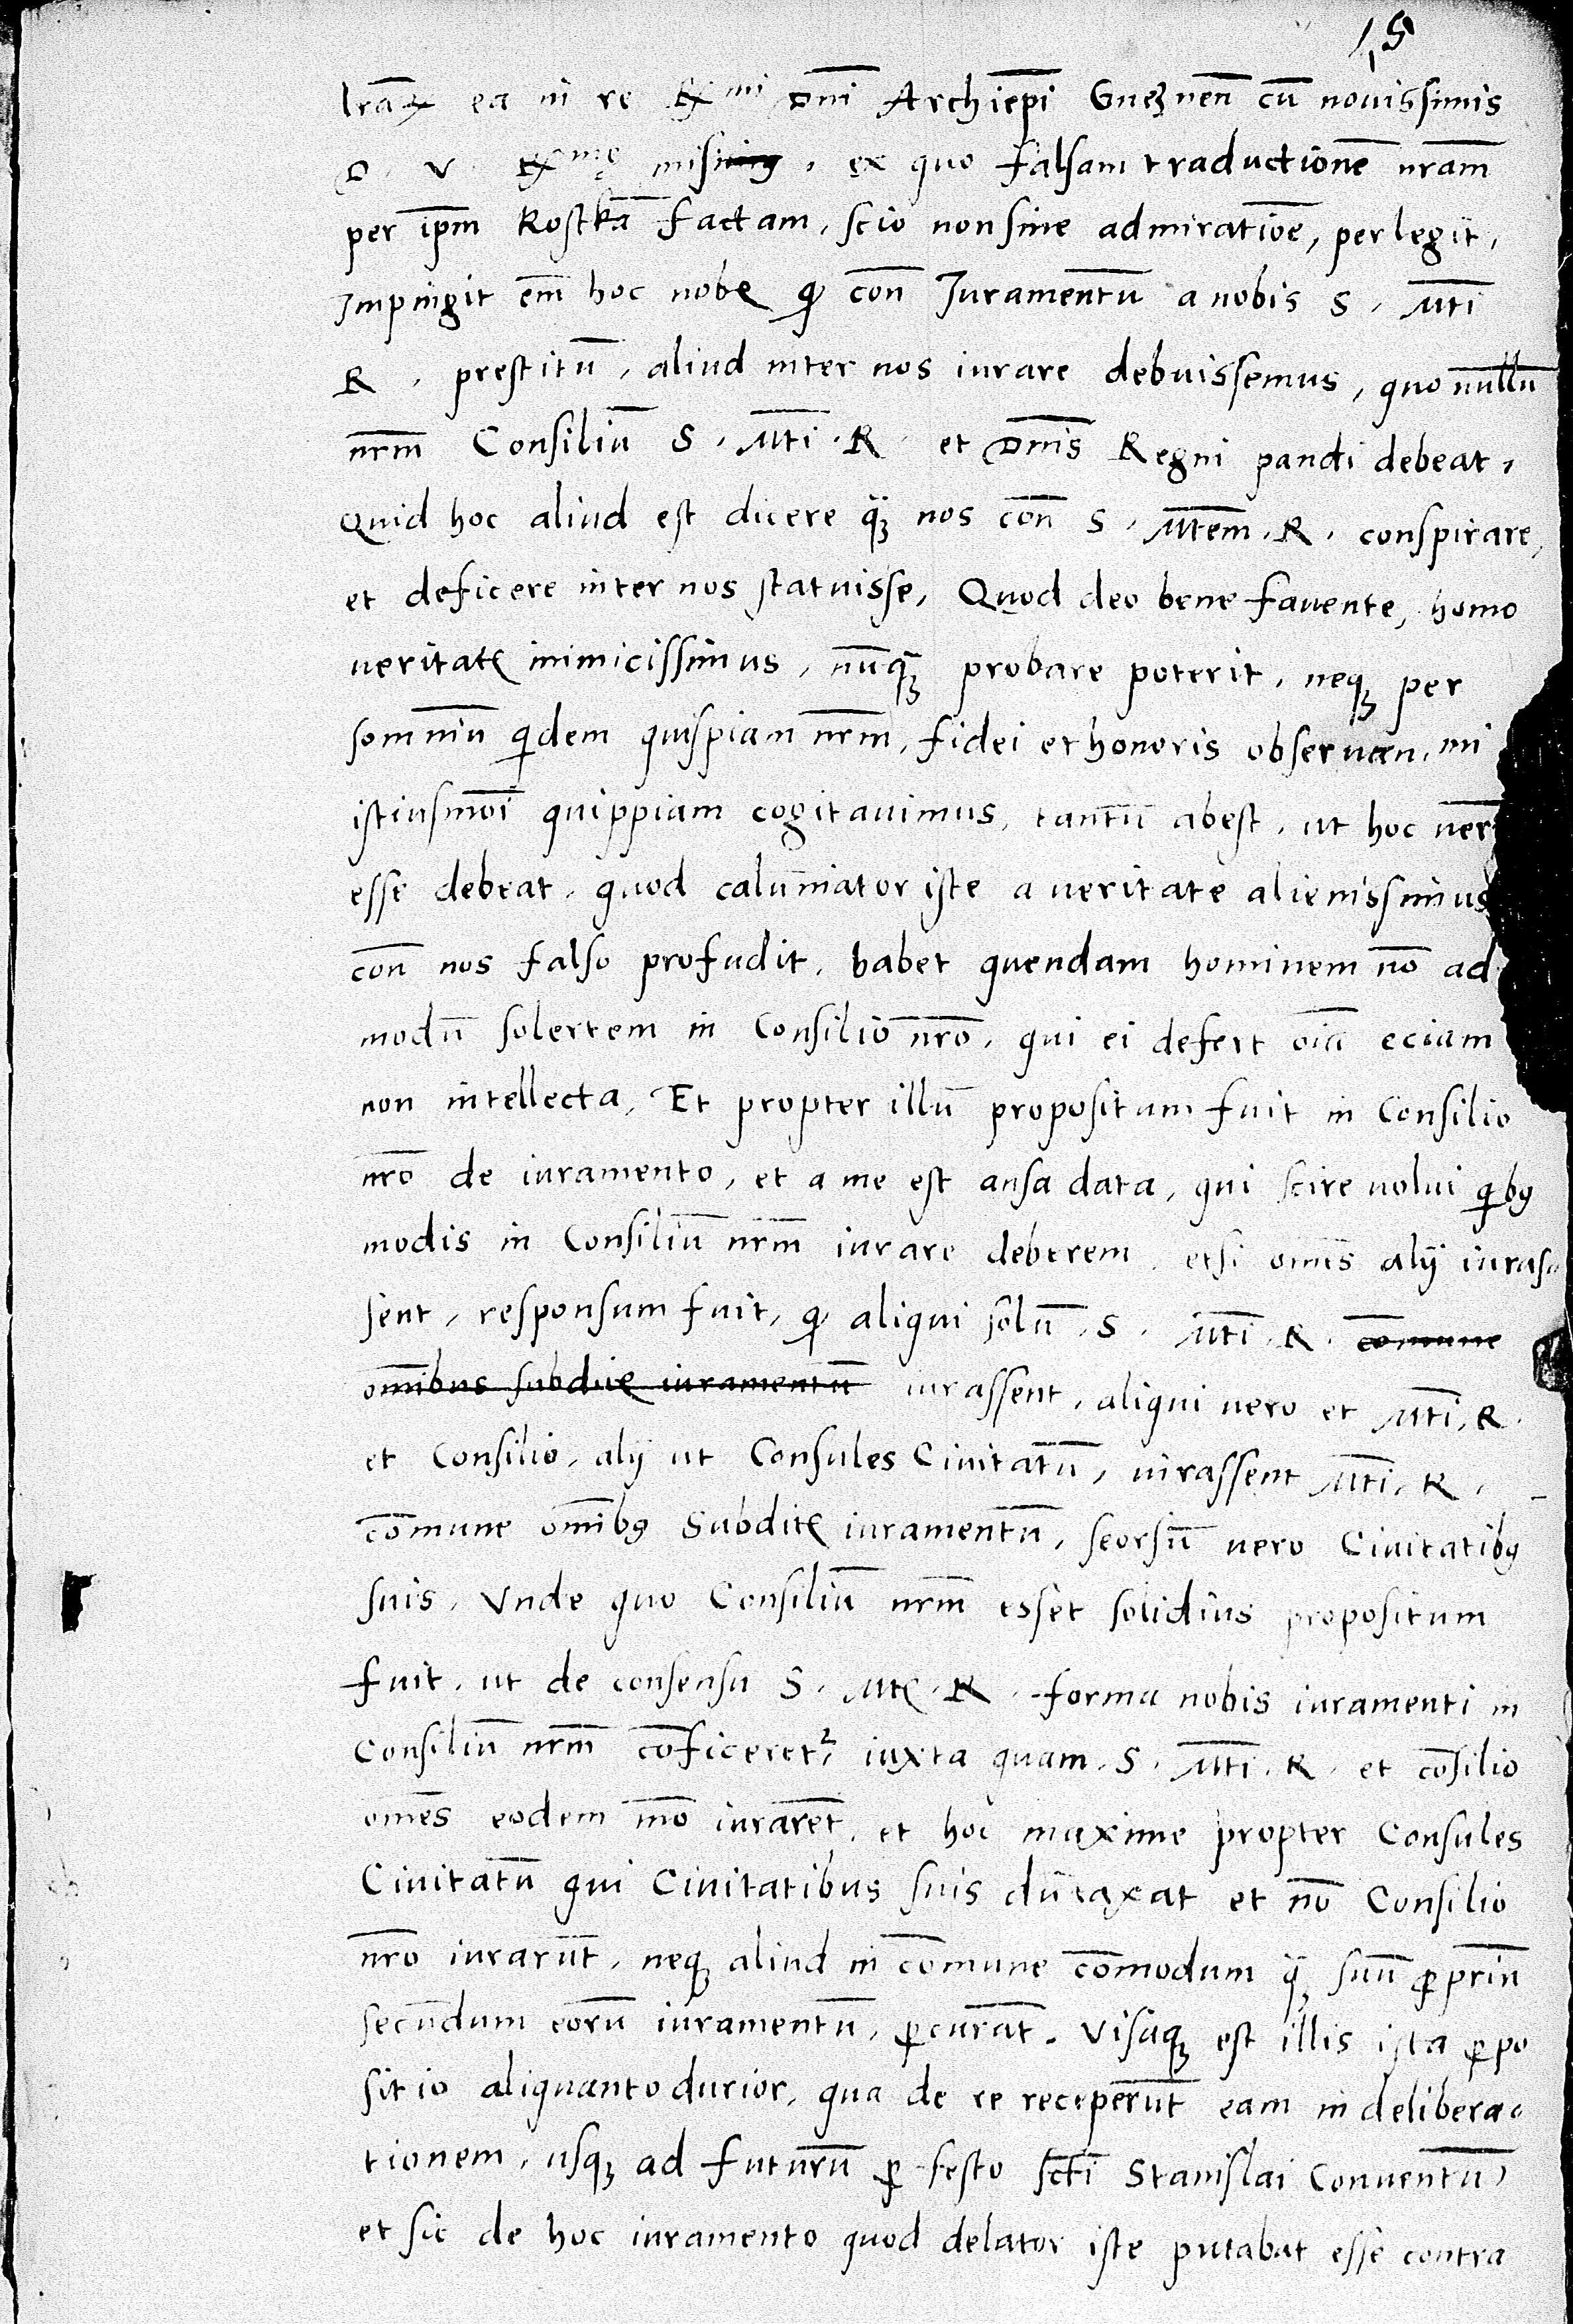 15
lrãꝝ ea in re Rmi Dni̅ Archiepi̅ Gneznen̅ cũ nouissimis
D. V. Rme misimus, ex quo falsam traductione̅ nram̅
per ipm̅ Rostka̅ factam, scio non sine admiratio̅e, perlegit,
Impingit em̅ hoc nobꝭ ꝙ con̅ Juramentu̅ a nobis S. Mti̅
R. prestitu̅, aliud inter nos iurare debuissemus, quo nullu̅
nrm̅ Consiliu̅ S. Mti̅. R. et Dnis̅ Regni pandi debeat,
Quid hoc aliud est dicere q̃ꝫ nos con̅ S. Mtem̅. R. conspirare,
et deficere inter nos statuisse, Quod deo bene fauente, homo
veritatꝭ inimicissimus, nu̅qꝫ probare poterit, neqꝫ per
somniu̅ qͥdem quispiam nrm̅, fidei et honoris obseruan. mi
istiusmo̅i quippiam cogitauimus, tantu̅ abest, ut hoc uer
esse debeat, quod calu̅niator iste a ueritate alienissimus
con̅ nos falso profudit. habet quendam hominem no̅ ad
modu̅ solertem in Consilio nro̅, qui ei defert oi̅a eciam
non intellecta, Et propter illu̅ propositum fuit in Consilio
nro̅ de iuramento, et a me est ansa data, qui scire uolui qͥbꝰ
modis in Consiliu̅ nrm̅ iurare deberem, etsi omes̅ alij iuras
sent, responsum fuit, ꝙ aliqui solu̅ S. Mti̅. R. co̅mune
omi̅bus subditꝭ iuramentu̅ iurassent, aliqui uero et Mti̅. R.
et Consilio, alij ut Consules Ciuitatu̅, iurassent Mti̅. R.
co̅mune omi̅bꝰ Subditꝭ iuramentu̅, seorsu̅ uero Ciuitatibꝰ
suis, Vnde quo Consiliu̅ nrm̅ esset solidius propositum
fuit, ut de consensu S. Mtꝭ. R. forma nobis iuramenti in
Consiliu̅ nrm̅ co̅ficeret᷑, iuxta quam S. Mti̅. R. et co̅silio
omes̅ eodem mo̅ iurare̅t, et hoc maxime propter Consules
Ciuitatu̅ qui Ciuitatibus suis du̅taxat et no̅ Consilio
nro̅ iuraru̅t, neqꝫ aliud in co̅mune co̅modum q̃ꝫ suu̅ ꝓpriu̅
secundum eoru̅ iuramentu̅, ꝓcura̅t. Visaqꝫ est illis ista ꝓpo
sitio aliquanto durior, qua de re receperu̅t eam in delibera
tionem, usqꝫ ad futuru̅ ꝓ festo scti̅ Stanislai Conuentu̅,
et sic de hoc iuramento quod delator iste putabat esse contra